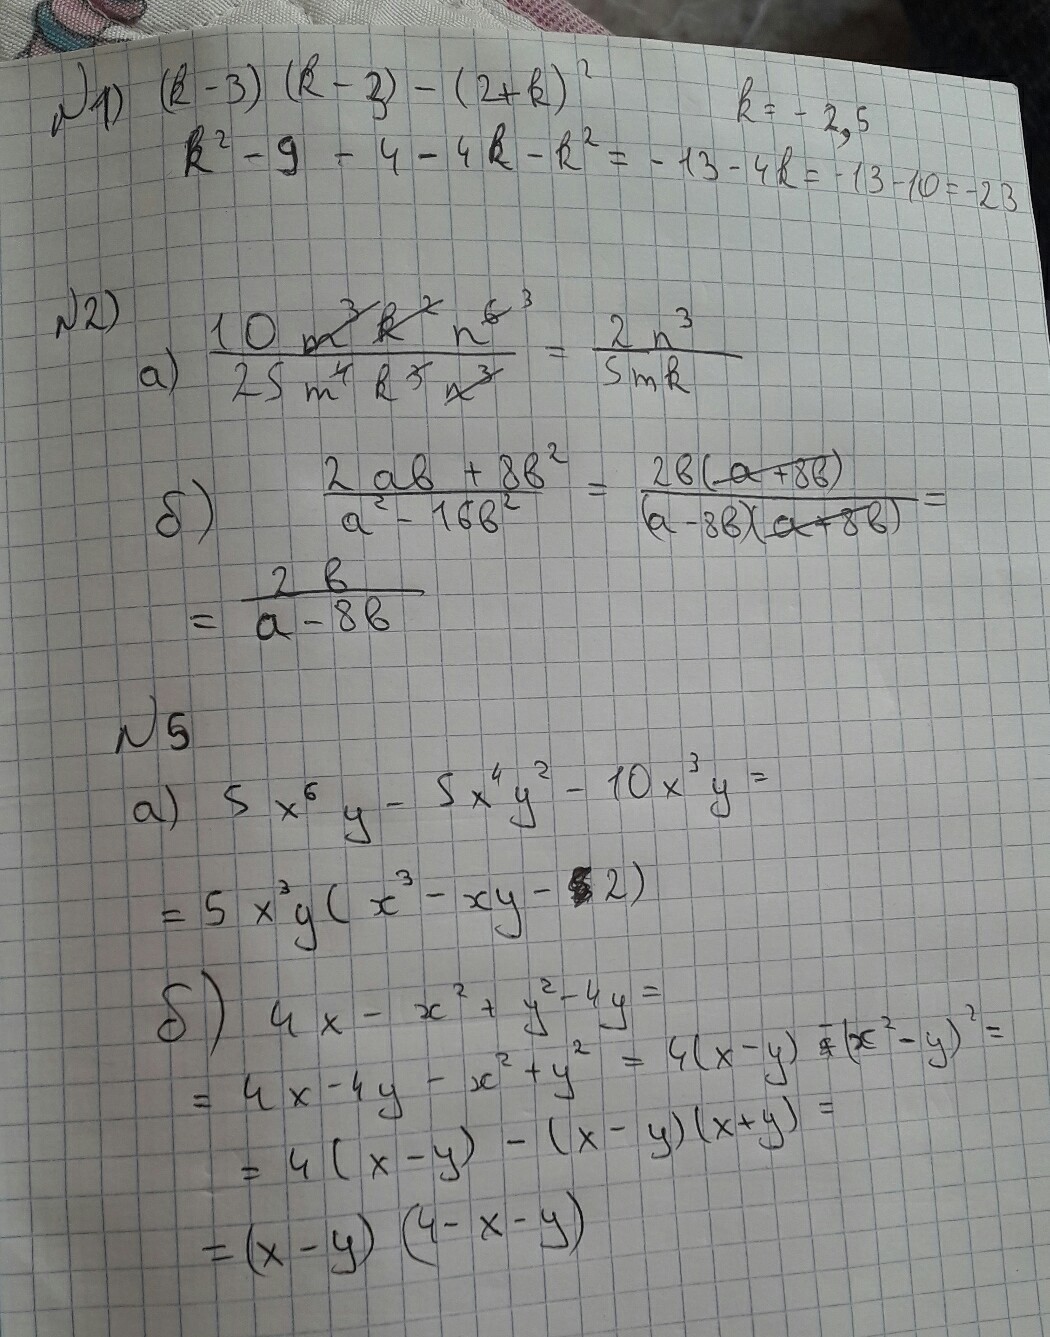 N1) (k - 3) (k - 3) - (2+k)² k = - 2,5
k² - 9 - 4 - 4k - k² = -13 - 4k = -13 - 10 = -23
N2)
а) 10 m³ k² n⁶ ³ / 25 m⁴ k³ n³ = 2 n³ / 5 m k
б) 2 ab + 8b² / a² - 16b² = 2b(a + 8b) / (a - 8b)(a + 8b) =
= 2 b / a - 8b
N5
а) 5 x⁶ y - 5x⁴y² - 10x³y =
= 5 x³y ( x³ - xy - 2)
б) 4x - x² + y² - 4y =
= 4x - 4y - x² + y² = 4(x - y) - (x² - y)² =
= 4 (x - y) - (x - y)(x + y) =
= (x - y) (4 - x - y)